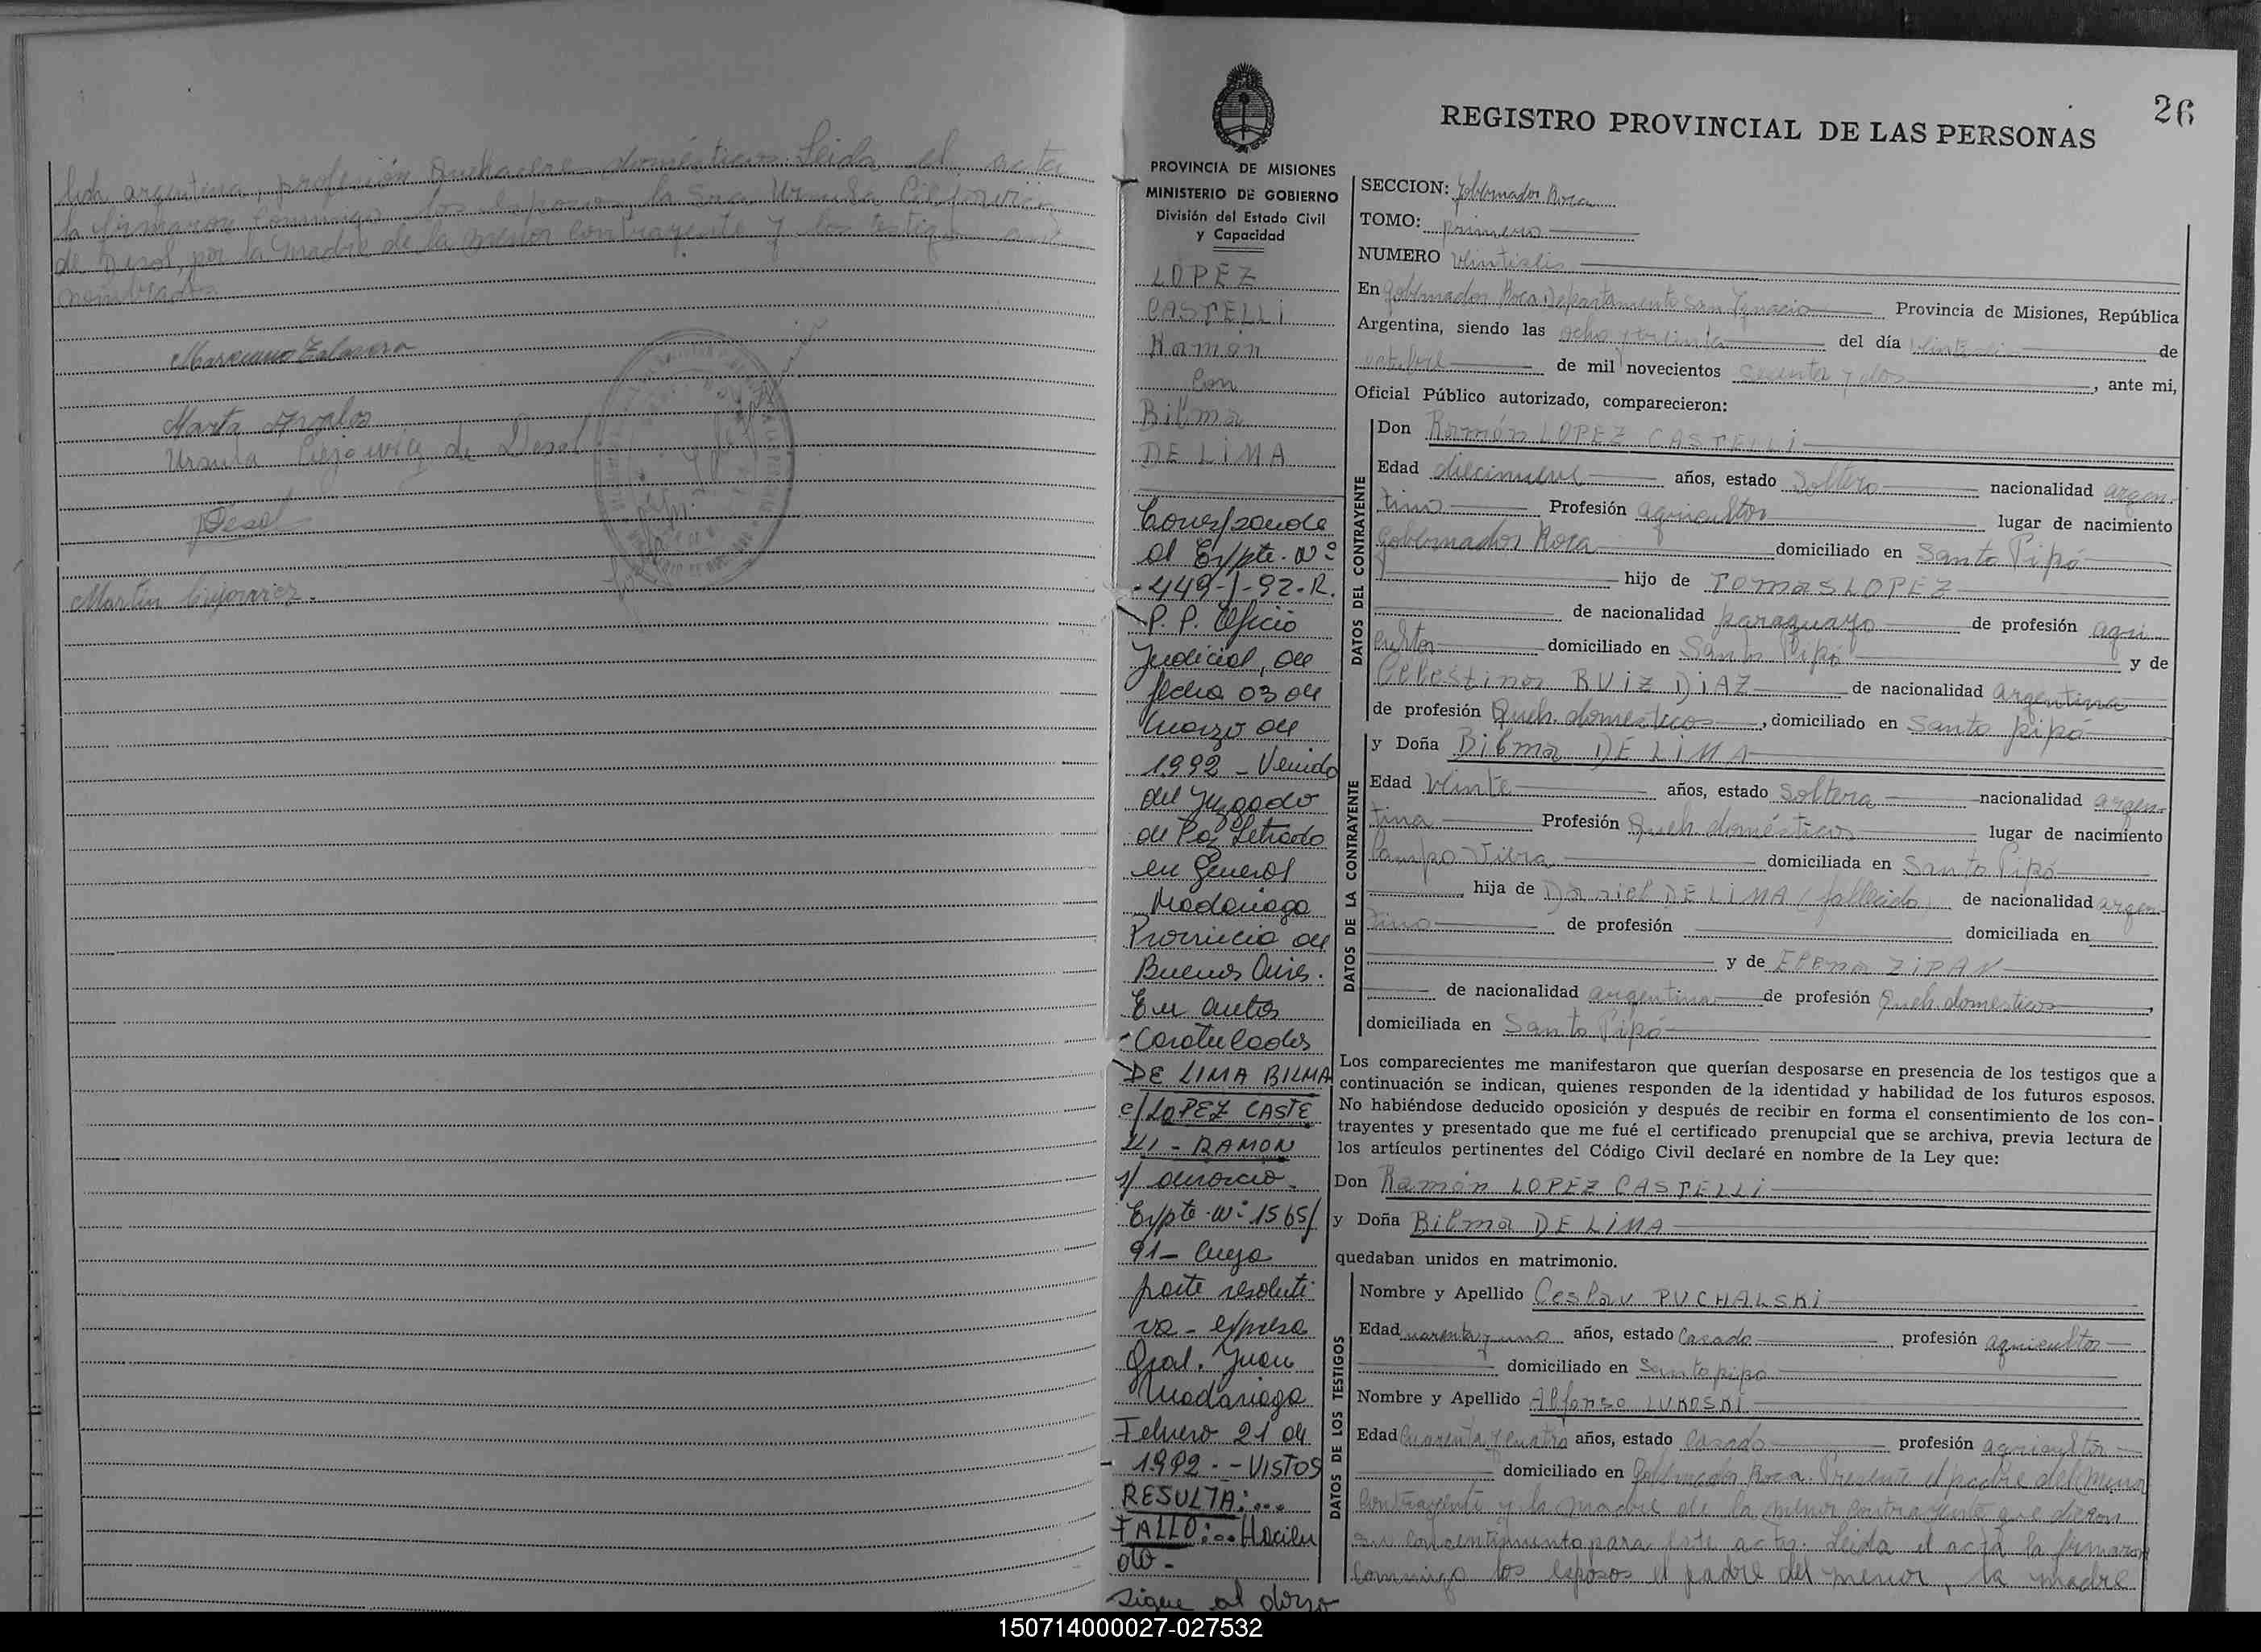 argentina, profesión Quehaceres domésticos. Leida el acta
la firmaron conmigo los esposos, la Sra. Ursula
de Desol, por la madre de la menor contrayente y los testigos
nombrados
Marta Avalos
Ursula Ciejowicz de Desol
Desol
26
REGISTRO PROVINCIAL DE LAS PERSONAS
PROVINCIA DE MISIONES
MINISTERIO DE GOBIERNO
División del Estado Civil
y Capacidad
LOPEZ
CASTELLI
Ramón
Con
Bilma
DE LIMA
Corresponde
al Expte. Nº
449-J-92-R.
P. P. Oficio
Judicial, de
fecha 03 de
Marzo de
1992 - Venido
del Juzgado
de Paz Letrado
en General
Madariaga
Provincia de
Buenos Aires.
En autos
Caratulados
DE LIMA BILMA
c/ LOPEZ CASTE
LLI - RAMON
s/ divorcio -
Expte. Nº 1565/
91 - Cuya
parte resoluti
va - expresa
Gral. Juan
Madariaga
Febrero 21 de
1992 - - VISTOS
RESULTA: ...
FALLO: ... Hacien
do -
Sigue al dorso
SECCION: Gobernador Roca
TOMO: primero
NUMERO Veintiseis
En Gobernador Roca Departamento San Ignacio Provincia de Misiones, República
Argentina, siendo las ocho y treinta del día de
octubre de mil novecientos sesenta y dos, ante mi,
Oficial Público autorizado, comparecieron:
DATOS DEL CONTRAYENTE
Don Ramón LOPEZ CASTELLI
Edad diecinueve años, estado Soltero nacionalidad argen-
tino Profesión agricultor lugar de nacimiento
Gobernador Roca domiciliado en Santo Pipó
hijo de Tomas LOPEZ
de nacionalidad paraguayo de profesión agri
cultor domiciliado en Santo Pipó y de
Celestina RUIZ DIAZ de nacionalidad argentina
de profesión Queh. domesticos, domiciliado en Santo pipó
DATOS DE LA CONTRAYENTE
y Doña Bilma DE LIMA
Edad Veinte años, estado Soltera nacionalidad argen-
tina Profesión Queh. domésticos lugar de nacimiento
Campo Viera domiciliada en Santo Pipó
hija de Daniel DE LIMA (fallecido) de nacionalidad argen-
tino de profesión domiciliada en
y de Elena ZIPAN
de nacionalidad argentina de profesión Queh. domesticos,
domiciliada en Santo Pipó
Los comparecientes me manifestaron que querían desposarse en presencia de los testigos que a
continuación se indican, quienes responden de la identidad y habilidad de los futuros esposos.
No habiéndose deducido oposición y después de recibir en forma el consentimiento de los con-
trayentes y presentado que me fué el certificado prenupcial que se archiva, previa lectura de
los artículos pertinentes del Código Civil declaré en nombre de la Ley que:
Don Ramón LOPEZ CASTELLI
y Doña Bilma DE LIMA
quedaban unidos en matrimonio.
DATOS DE LOS TESTIGOS
Nombre y Apellido Ceslav PUCHALSKI
Edad cuarenta y uno años, estado Casado profesión agricultor
domiciliado en Santo pipo
Nombre y Apellido Alfonso LUKOSKI
Edad Cuarenta y cuatro años, estado Casado profesión agricultor
domiciliado en Gobernador Roca. Presente el padre del menor
Contrayente y la madre de la menor Contrayente que dieron
su consentimiento para este acto. Leida el acta la firmaron
conmigo los esposos el padre del menor, la madre
150714000027-027532